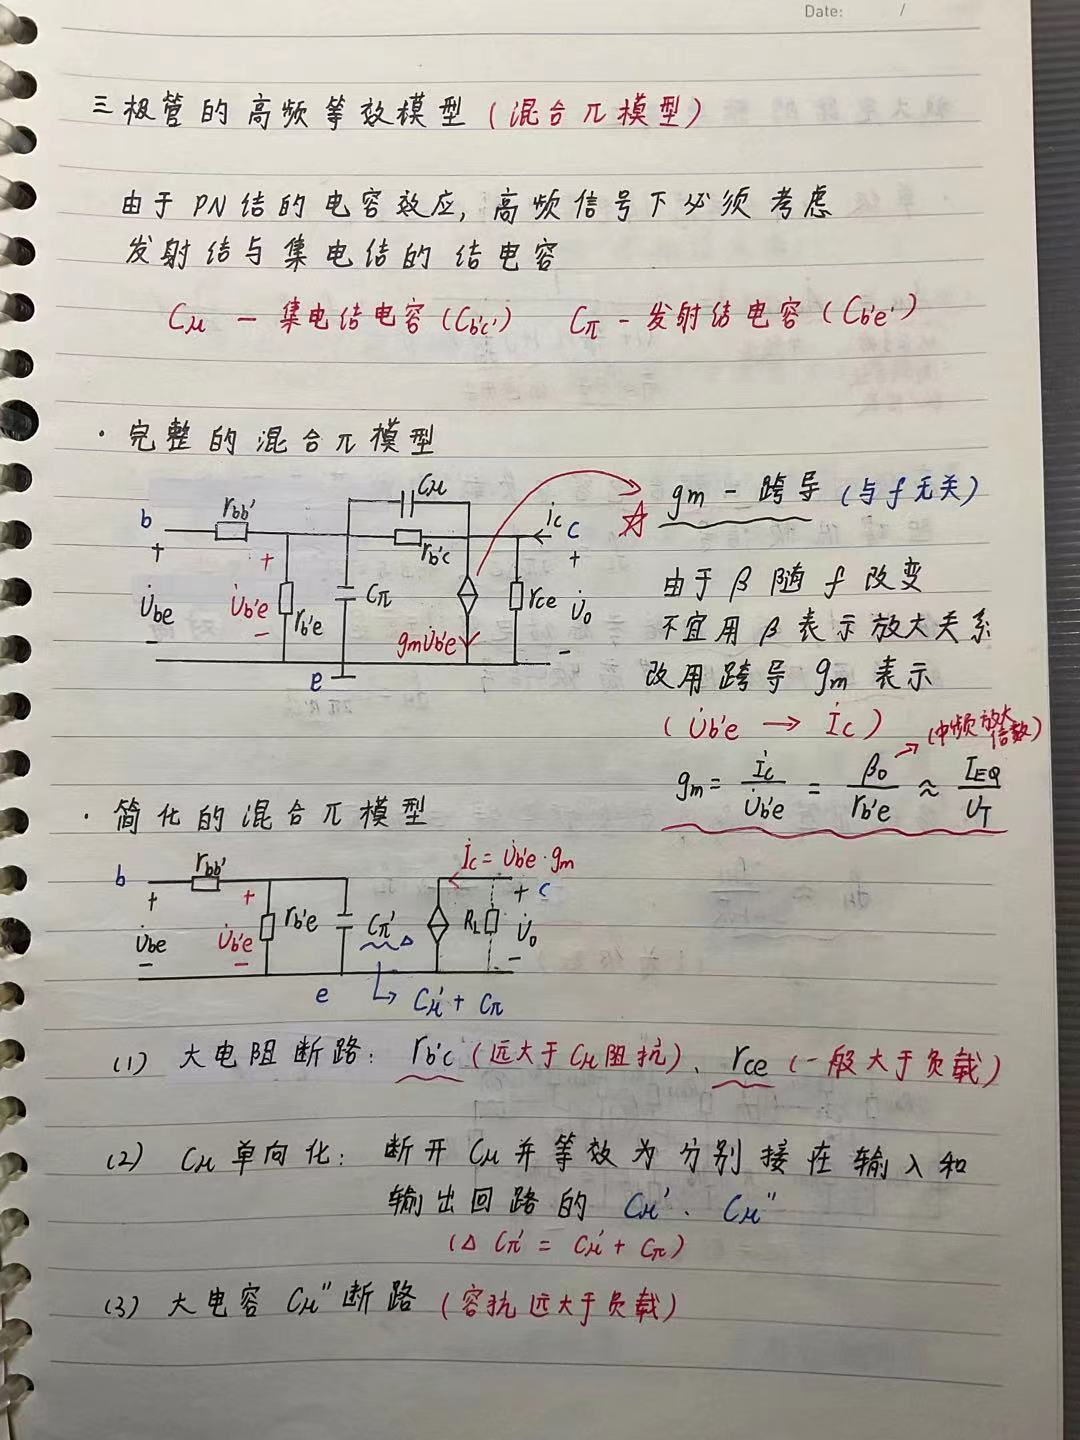 Date: /
三极管的高频等效模型(混合π模型)
由于PN结的电容效应,高频信号下必须考虑
发射结与集电结的结电容
Cμ — 集电结电容(Cb'c') Cπ - 发射结电容(Cb'e')
· 完整的混合π模型
b rbb' Cμ rb'c ic c
+ + +
U̇be U̇b'e rb'e Cπ gmU̇b'e rce U̇o
- - -
e
☆ gm - 跨导(与f无关)
由于β随f改变
不宜用β表示放大关系
改用跨导gm表示
(U̇b'e → İc)
gm = İc/U̇b'e = β0/rb'e ≈ IEQ/UT
(中频放大倍数)
· 简化的混合π模型
b rbb' İc = U̇b'e·gm
+ + + c
U̇be U̇b'e rb'e Cπ' RL U̇o
- - -
e ↳ Cμ' + Cπ
(1) 大电阻断路: rb'c(远大于Cμ阻抗)、rce(一般大于负载)
(2) Cμ单向化: 断开Cμ并等效为分别接在输入和
输出回路的 Cμ'、Cμ"
(△ Cπ' = Cμ' + Cπ)
(3) 大电容 Cμ"断路(容抗远大于负载)